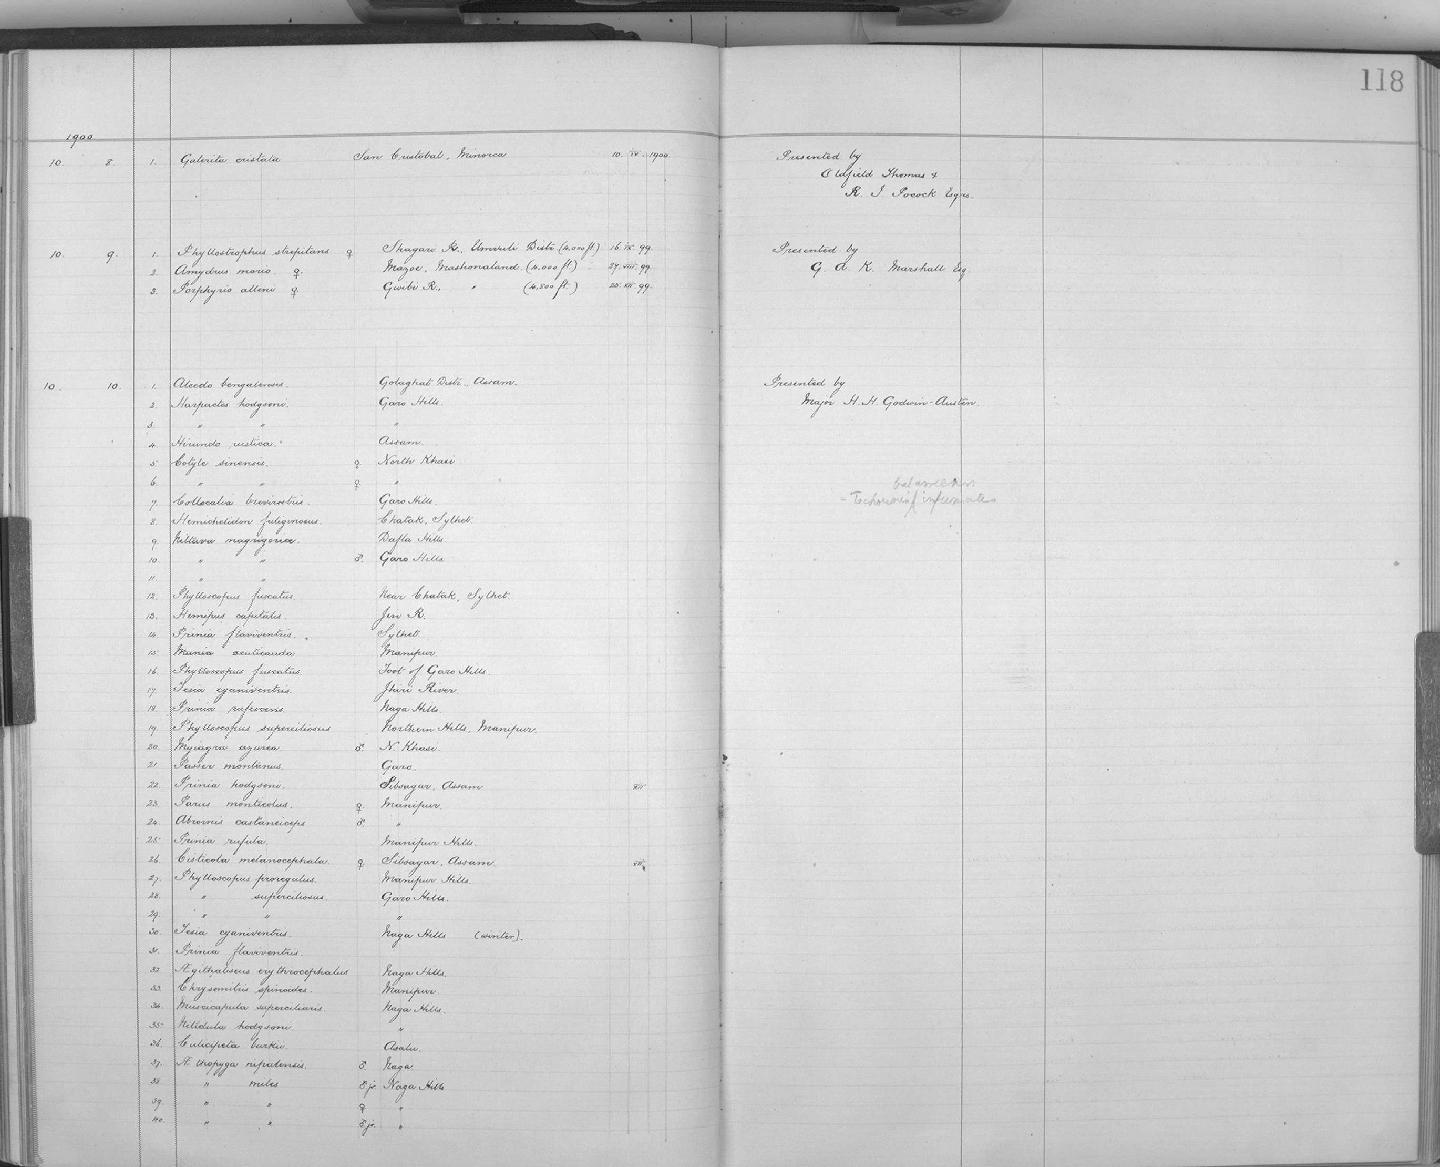 118
1900
10. 8. 1. Galerita cristata San Cristobal, Minorca 10. IV. 1900. Presented by
Oldfield Thomas &
R. I. Pocock Esqrs.
10. 9. 1. Phyllostrophus strepitans ♀ Umvuli Distr. (4,000 ft.) 16. IX. 99. Presented by
2. Amydrus morio ♀ Mazoe, Mashonaland (4,000 ft.) 27. VIII. 99. G. A. K. Marshall Esq.
3. Porphyrio alleni ♀ Gwibi R., " (4,800 ft.) 25. XII. 99.
10. 10. 1. Alcedo bengalensis. Golaghat Distr., Assam. Presented by
2. Harpactes hodgsoni. Garo Hills. Major H. H. Godwin-Austen
3. " " "
4. Hirundo rustica. Assam.
5. Cotyle sinensis. ♀ North Khasi
6. " " ♀ "
7. Collocalia brevirostris. Garo Hills.
8. Hemichelidon fuliginosus. Chatak, Sylhet.
9. Niltava magrigoriæ. Dafla Hills
10. " " ♂. Garo Hills
11. " "
12. Phylloscopus fuscatus. Near Chatak, Sylhet.
13. Hemipus capitalis Jiri R.
14. Prinia flaviventris. Sylhet.
15. Munia acuticauda Manipur.
16. Phylloscopus fuscatus. Foot of Garo Hills.
17. Tesia cyaniventris. Jhiri River
18. Prinia rufescens. Naga Hills.
19. Phylloscopus superciliosus Northern Hills, Manipur.
20. Myiagra azurea ♂ N. Khasi.
21. Passer montanus. Garo.
22. Prinia hodgsoni. Sibsagar, Assam XII
23. Parus monticolus. ♀ Manipur.
24. Abrornis castaneiceps ♂ "
25. Prinia rufula. Manipur Hills.
26. Cisticola melanocephala. ♀ Sibsagar, Assam XII.
27. Phylloscopus proregulus. Manipur Hills.
28. " superciliosus. Garo Hills.
29. " " "
30. Tesia cyaniventris. Naga Hills (winter).
31. Prinia flaviventris.
32. Ægithaliscus erythrocephalus Naga Hills.
33. Chrysomitris spinoides. Manipur.
34. Muscicapula superciliaris. Naga Hills.
35. Nitidula hodgsoni "
36. Culicipeta burkii. Asalu.
37. Æthopyga nipalensis. ♂. Naga.
38. " miles ♂ jr. Naga Hills
39. " " ♀ "
40. " " ♂ jr. "